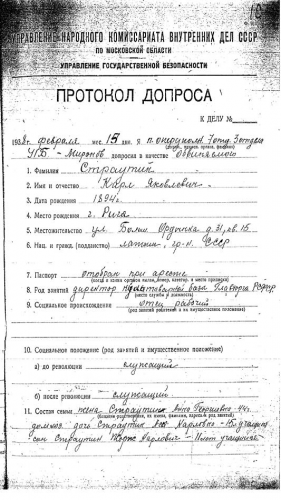 УПРАВЛЕНИЕ НАРОДНОГО КОМИССАРИАТА ВНУТРЕННИХ ДЕЛ СССР
ПО МОСКОВСКОЙ ОБЛАСТИ
УПРАВЛЕНИЕ ГОСУДАРСТВЕННОЙ БЕЗОПАСНОСТИ
ПРОТОКОЛ ДОПРОСА
К ДЕЛУ №
1938 г. февраля мес. 15 дня. Я,
УГБ - Миронов допросил в качестве обвиняемого
1. Фамилия Страутин
2. Имя и отчество Карл Яковлевич
3. Дата рождения 1894 г.
4. Место рождения г. Рига
5. Местожительство ул. Больш Ордынка д 31, кв. 15
6. Нац. и гражд. (подданство) латыш, гр-н СССР
7. Паспорт отобран при аресте
8. Род занятий директор базы РСФСР
(место службы и должность)
9. Социальное происхождение отец рабочий
(род занятий родителей и их имущественное положение)
10. Социальное положение (род занятий и имущественное положение)
а) до революции служащий
б) после революции служащий
11. Состав семьи жена Страутин Анна Георгиевна - 44 г.
дочь Страутин Карловна учащаяся
сын Страутин Карлович учащийся